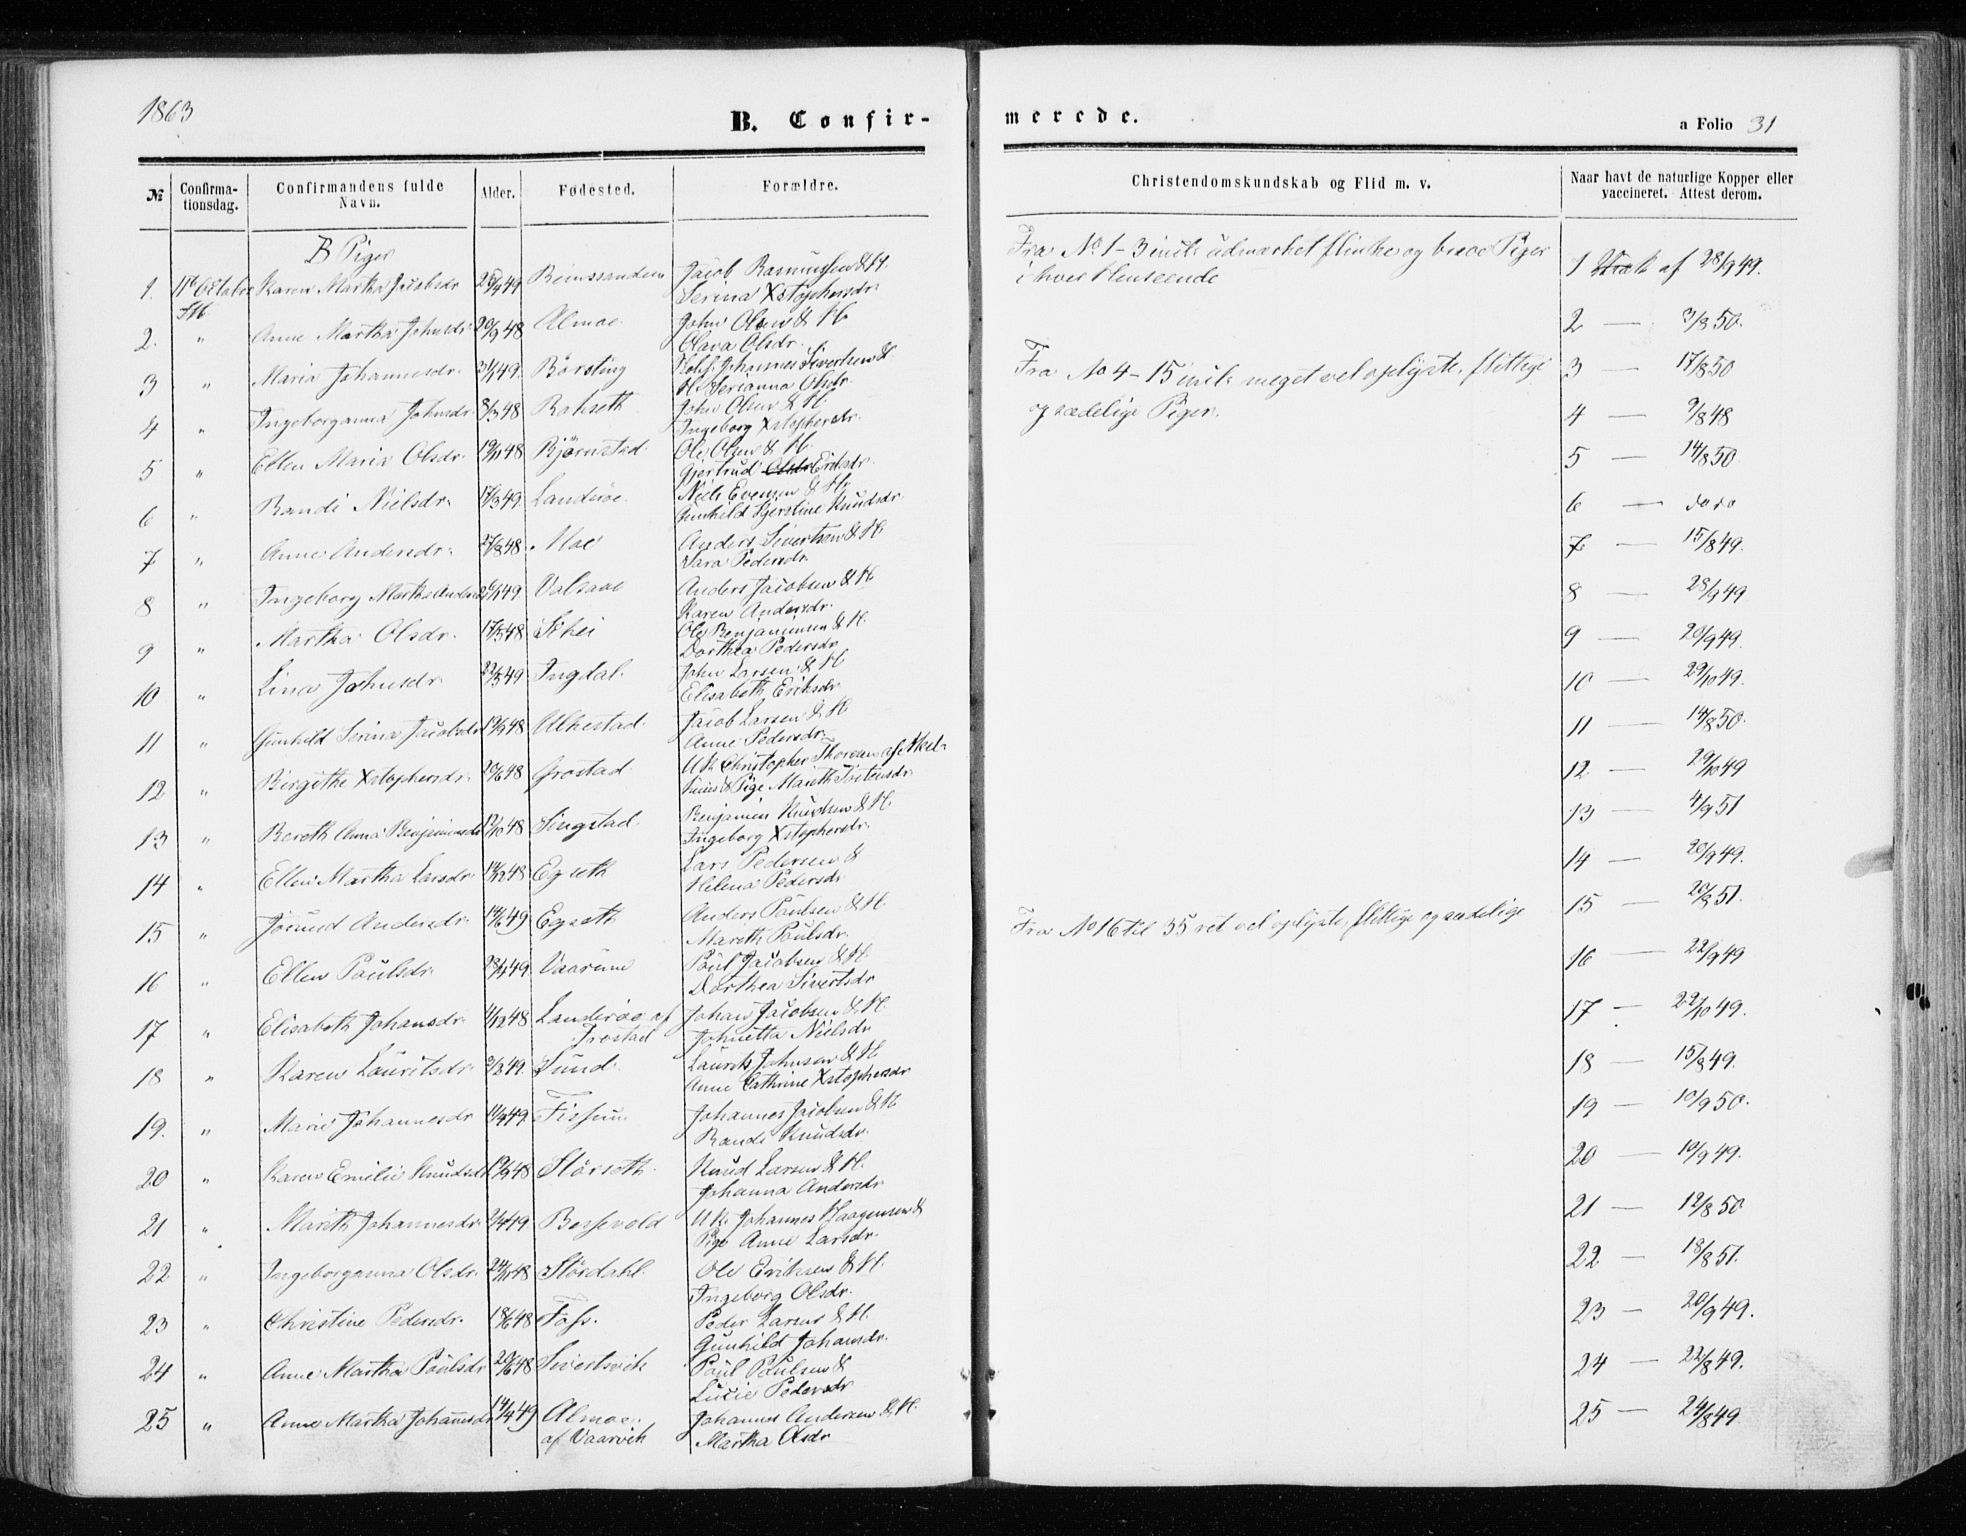 1863
B. Confir-
merede.
a Folio 31
№ Confirma-tionsdag. Confirmandens fulde Navn. Alder. Fødested. Forældre. Christendomskundskab og Flid m. v. Naar havt de naturlige Kopper eller vaccineret. Attest derom.
B Piger
Fra No 1-3 incl: udmærket flinke og brave Piger
i hver Henseende
1. 11te October Karen Martha Jacobsdr 49 Reinssanden Jacob Rasmussen & H. 1 af 28/9 49.
Serina Xstophersdr.
2. " Anne Martha Johnsdr 20/9 48 Almoe John Olsen & H. 2 — 3/8 50.
Olava Olsdr.
Fra No 4-15 incl: meget vel oplyste, flittige
og sædelige Piger.
3 " Maria Johannesdr. 49. Børsting Johannes Sivertsen & 3 — 17/8 50
H. Serianna Olsdr.
4 " Ingeborganna Johnsdr. 8/3 48 Rokseth John Olsen & H. 4 — 9/8 48
Ingeborg Xstophersdr.
5 " Ellen Maria Olsdr. 19/11 48 Bjørnstad. Ole Olsen & H. 5 — 14/8 50.
Gjertrud Olsdr Eriksdr.
6 " Randi Nielsdr. 17/3 49. Landrøe. Niels Evensen & H. 6 — do do
Gunhild Kjerstine Knudsdr.
7 " Anne Andersdr. 27/8 48. Moe Anders Sivertsen & H. 7 — 15/8 49.
Sara Pedersdr.
8 " Ingeborg Martha Andersdr 49. Valsaae Anders Jacobsen & H. 8 — 28/9 49
Karen Andersdr.
9 " Martha Olsdr. 17/5 48 Skei Ole Benjaminsen & H. 9 — 20/9 49.
Dorthea Pedersdr.
10 " Lina Johnsdr 23/5 49 Ingdal. John Larsen & H. 10 — 29/10 49.
Elisabeth Eriksdr.
11 " Gunhild Serina Jacobsdr 48 Alkestad. Jacob Larsen & H. 11 — 14/8 50.
Anne Pedersdr.
12 " Birgithe Xstophersdr. 20/6 48 Grostad. U K. Christopher Thoresen af
& Pige Mareth 12 — 29/10 49
13 " Bereth Anna Benjaminsdr 12/10 48 Singstad. Benjamin Knudsen & H. 13 — 4/9 51
Ingeborg Xstophersdr.
14 " Ellen Martha Larsdr. 14/12 48 Egseth Lars Pedersen & 14 — 20/9 49.
Helena Pedersdr
Fra No 16 til 35 ret vel oplyste, flittige og sædelige
15 " Jørund Andersdr. 14/6 49 Egseth Anders Paulsen & H. 15 — 20/8 51.
Mareth Paulsdr.
16 " Ellen Paulsdr. 49. Vaarum Paul Jacobsen & H. 16 — 22/9 49
Dorthea Sivertsdr.
17 " Elisabeth Johansdr. 11/12 48 Landrøe af Johan Jacobsen & H. 17 — 29/10 49.
Johnetta Nielsdr
18 " Karen Lauritsdr. 49. Sund. Laurits Johnsen & H 18 — 15/8 49.
Anne Cathrine Xstophersdr
19. " Marie Johannesdr 49. Fissum. Johannes Jacobsen & H 19 — 10/9 50.
Randi Knudsdr.
20 " Karen Emilie Knudsdr 48 Størseth. Knud Larsen & H. 20 — 10/9 49.
Johanna Andersdr.
21 " Mareth Johannesdr 49. Bersevold U K. Johannes Haagensen & 21 — 12/8 50
Pige Anne Larsdr.
22 " Ingeborganna Olsdr. 24/11 48 Størdahl. Ole Eriksen & H. 22 — 18/8 51.
Ingeborg Olsdr.
23 " Christine Pedersdr. 18/6 48 Foss. Peder Larsen & H. 23 — 20/9 49.
Gunhild Johansdr.
24 " Anne Martha Paulsdr 20/6 48 Sivertsvik Paul Paulsen & 24 — 22/8 49.
Lucie Pedersdr
25 " Anne Martha Johannesdr 14/4 49 Almoe. Johannes Andersen & H. 25 — 24/8 49.
af Vaarvik Martha Olsdr